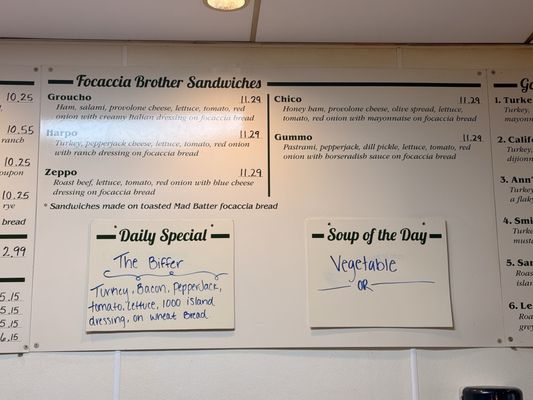 Focaccia Brother Sandwiches
Groucho 11.29
Ham, salami, provolone cheese, lettuce, tomato, red
onion with creamy Italian dressing on focaccia bread
Harpo 11.29
Turkey, pepperjack cheese, lettuce, tomato, red onion
with ranch dressing on focaccia bread
Zeppo 11.29
Roast beef, lettuce, tomato, red onion with blue cheese
dressing on focaccia bread
* Sandwiches made on toasted Mad Batter focaccia bread
Chico 11.29
Honey ham, provolone cheese, olive spread, lettuce,
tomato, red onion with mayonnaise on focaccia bread
Gummo 11.29
Pastrami, pepperjack, dill pickle, lettuce, tomato, red
onion with horseradish sauce on focaccia bread
Daily Special
The Biffer
Turkey, Bacon, PepperJack,
tomato, lettuce, 1000 island
dressing, on wheat Bread.
Soup of the Day
Vegetable
OR
10.25
10.55
ranch
10.25
oupon
10.25
rye
bread
2.99
5.15
5.15
5.15
6.15
1. Turke
Turkey,
mayon
2. Calif
Turke
dijonn
3. Ann'
Turke
a flaky
4. Smi
Turke
musta
5. San
Roas
islan
6. Le
Roas